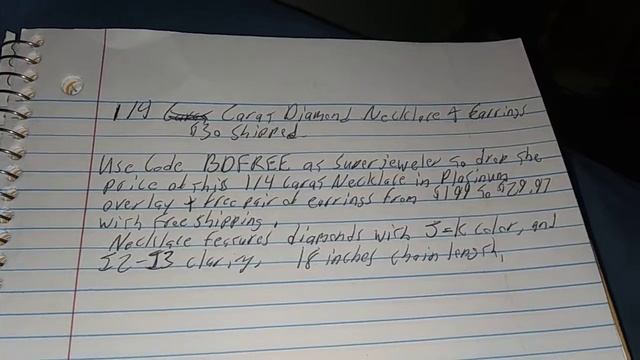 1/4 Carat Diamond Necklace & Earrings
$30 Shipped
Use Code BDFREE at Superjeweler to drop the
price of this 1/4 Carat Necklace in Platinum
overlay + free pair of earrings from $199 to $29.97
with free shipping.
Necklace features diamonds with J-K color, and
I2-I3 clarity, 18 inches chain length,